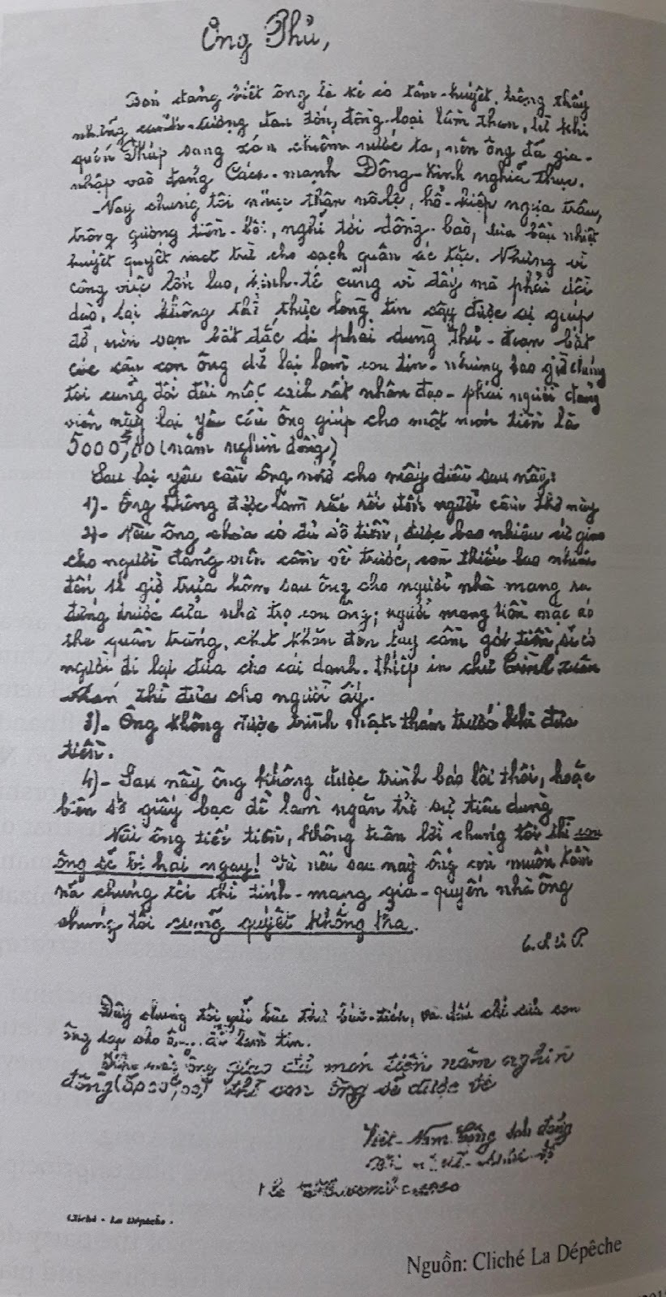 Ông Phủ,
Bọn đảng biết ông là kẻ có tâm-huyết, trông thấy
những cảnh-tượng đau đớn, đồng-loại lầm than, từ khi
quân Pháp sang xâm chiếm nước ta, nên ông đã gia-
nhập vào đảng Cách-mạnh Đông-Kinh nghĩa thục.
- Nay chúng tôi nhục thân nô lệ, hổ-kiếp ngựa trâu,
trông gương tiền-bối, nghĩ tới đồng-bào, bầu nhiệt
huyết quyết trừ cho sạch quân ác tặc. Nhưng vì
công việc lớn lao, kinh-tế cũng vì đấy mà phải dồi
dào, lại không thể thực lòng tin cậy được sự giúp
đỡ, nên vạn bất đắc dĩ phải dùng thủ-đoạn bắt
cóc cậu con ông để lại làm con tin - nhưng bao giờ chúng
tôi cũng đối đãi một cách rất nhân đạo - phái người đảng
viên này lại yêu cầu ông giúp cho một món tiền là
5000$00 (năm nghìn đồng)
Sau lại yêu cầu ông nhớ cho mấy điều sau này:
1)- Ông không được làm rắc rối đến người cầm thơ này
2)- Nếu ông chưa có đủ số tiền, được bao nhiêu cứ giao
cho người đảng viên cầm về trước, còn thiếu bao nhiêu
đến 12 giờ trưa hôm sau ông cho người nhà mang ra
đứng trước cửa nhà trọ con ông; người mang tiền mặc áo
the quần trắng, chít khăn đen tay cầm gói tiền, sẽ có
người đi lại đưa cho cái danh-thiếp in chữ Trình xuân
thì đưa cho người ấy.
3)- Ông không được trình mật thám trước khi đưa
tiền.
4)- Sau này ông không được trình báo lôi thôi, hoặc
biên số giấy bạc để làm ngăn trở sự tiêu dùng
Nếu ông tiếc tiền, không tuân lời chúng tôi thì con
ông sẽ bị hại ngay! Và nếu sau này ông còn muốn tầm
nã chúng tôi thì tính-mạng gia-quyến nhà ông
chúng tôi cũng quyết không tha.
Đây chúng tôi gửi bức thư bảo-tích, và dấu chỉ của con
ông để làm tin.
ông giao đủ món tiền năm nghìn
đồng (5000$00) thì con ông sẽ được về
Việt-Nam Cộng sản đảng
Cliché - La Dépêche.
Nguồn: Cliché La Dépêche